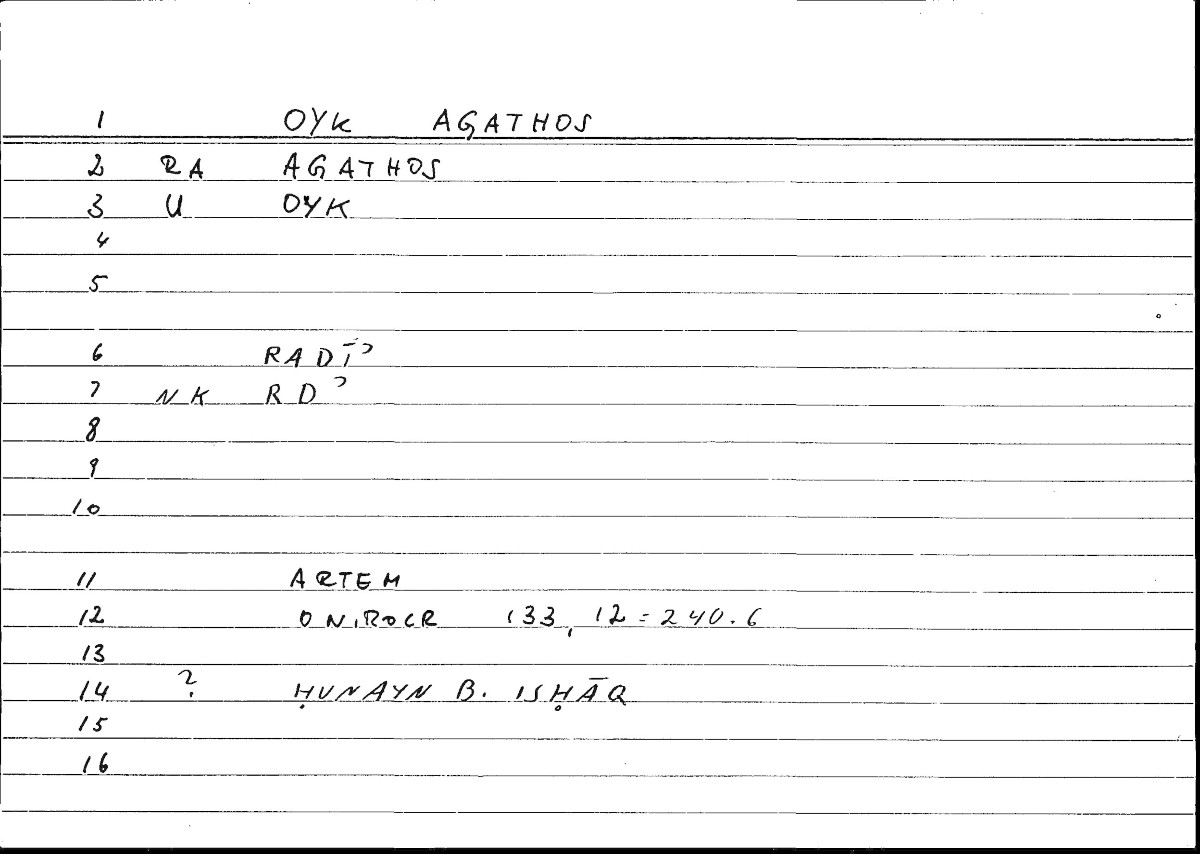 1 OYK AGATHOS
2 RA AGATHOS
3 U OYK
4
5
6 RADĪʾ
7 NK RDʾ
8
9
10
11 ARTEM
12 ONIROCR 133, 12 = 240.6
13
14 ? ḤUNAYN B. ISḤĀQ
15
16